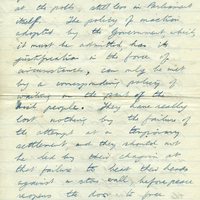 at the poll, still less in Parliament
itself. The policy of inaction
adopted by the Government, which
it must be admitted, has its
justification in the force of
circumstances, can only be met
by a corresponding policy of
waiting on the part of the
people. They have really
lost nothing by the failure of
the attempt at a temporary
settlement, and they should not
be led by their chagrin at
that failure to beat their heads
against a stone wall, before peace
reopens the door to free